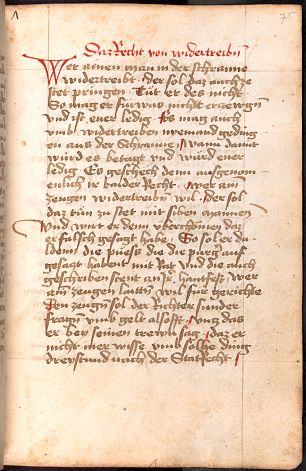 Daz Recht von widertreibn
Wer ainen man in der schranne
widertreibt der sol daz auch ze
stet pringen Tut er des nicht
So mag er fur waz nicht erzewgn
und ist ener ledig Es mag auch
umb widertreiben niemand geding
en aus der Schranne wann damit
wurd es betagt und wurd ener
ledig Es geschech dem ausgenom
enlich in bander Recht wer ain
zewgen widertreiben wil der sol
daz tun zu stet mit siben mannen
Und wirt er dem uberchomen daz
er falsch gesagt habe So sol er du
lden die puezz die die purg auf
gesaczt habent mit Rat und die auch
geschriben stent an ir hantfest Wer
ain zewgen laittn wil fur gerichte
Den zewgn sol der Richter sunder
fragn umb gelt als offt uncz das
er bey seinen trewn sag daz er
nicht mer wisse umb solhe ding
dreystund nach der Stat Recht